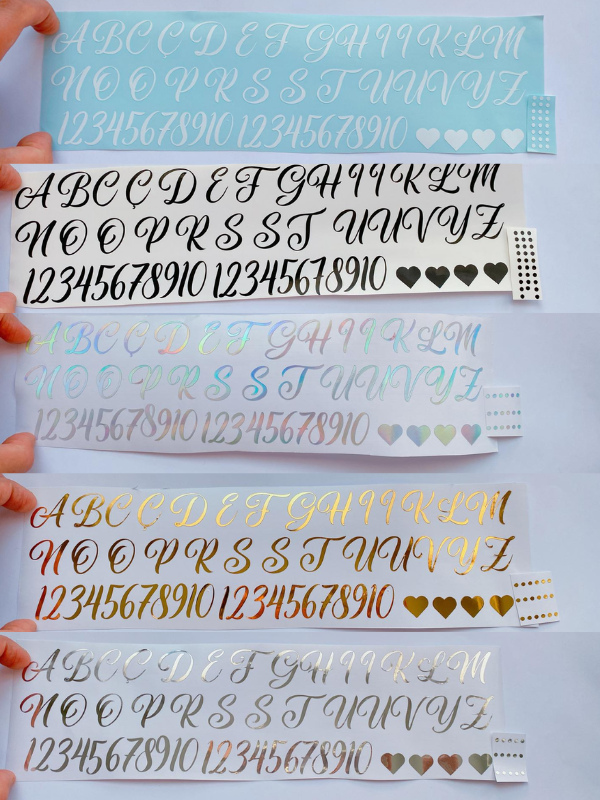 A B C Ç D E F G H I I K L M
N O O P R S S T U U V Y Z
12345678910 12345678910
A B C Ç D E F G H I I K L M
N O O P R S S T U U V Y Z
12345678910 12345678910
A B C Ç D E F G H I I K L M
N O O P R S S T U U V Y Z
12345678910 12345678910
A B C Ç D E F G H I I K L M
N O O P R S S T U U V Y Z
12345678910 12345678910
A B C Ç D E F G H I I K L M
N O O P R S S T U U V Y Z
12345678910 12345678910